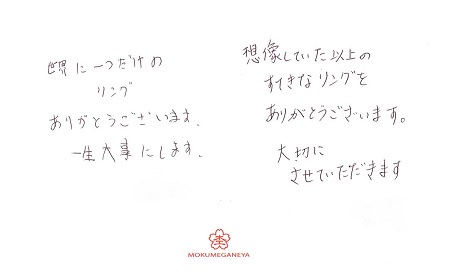 世界に一つだけの
リング
ありがとうございます.
一生大事にします.
想像していた以上の
すてきなリングを
ありがとうございます。
大切に
させていただきます
MOKUMEGANEYA